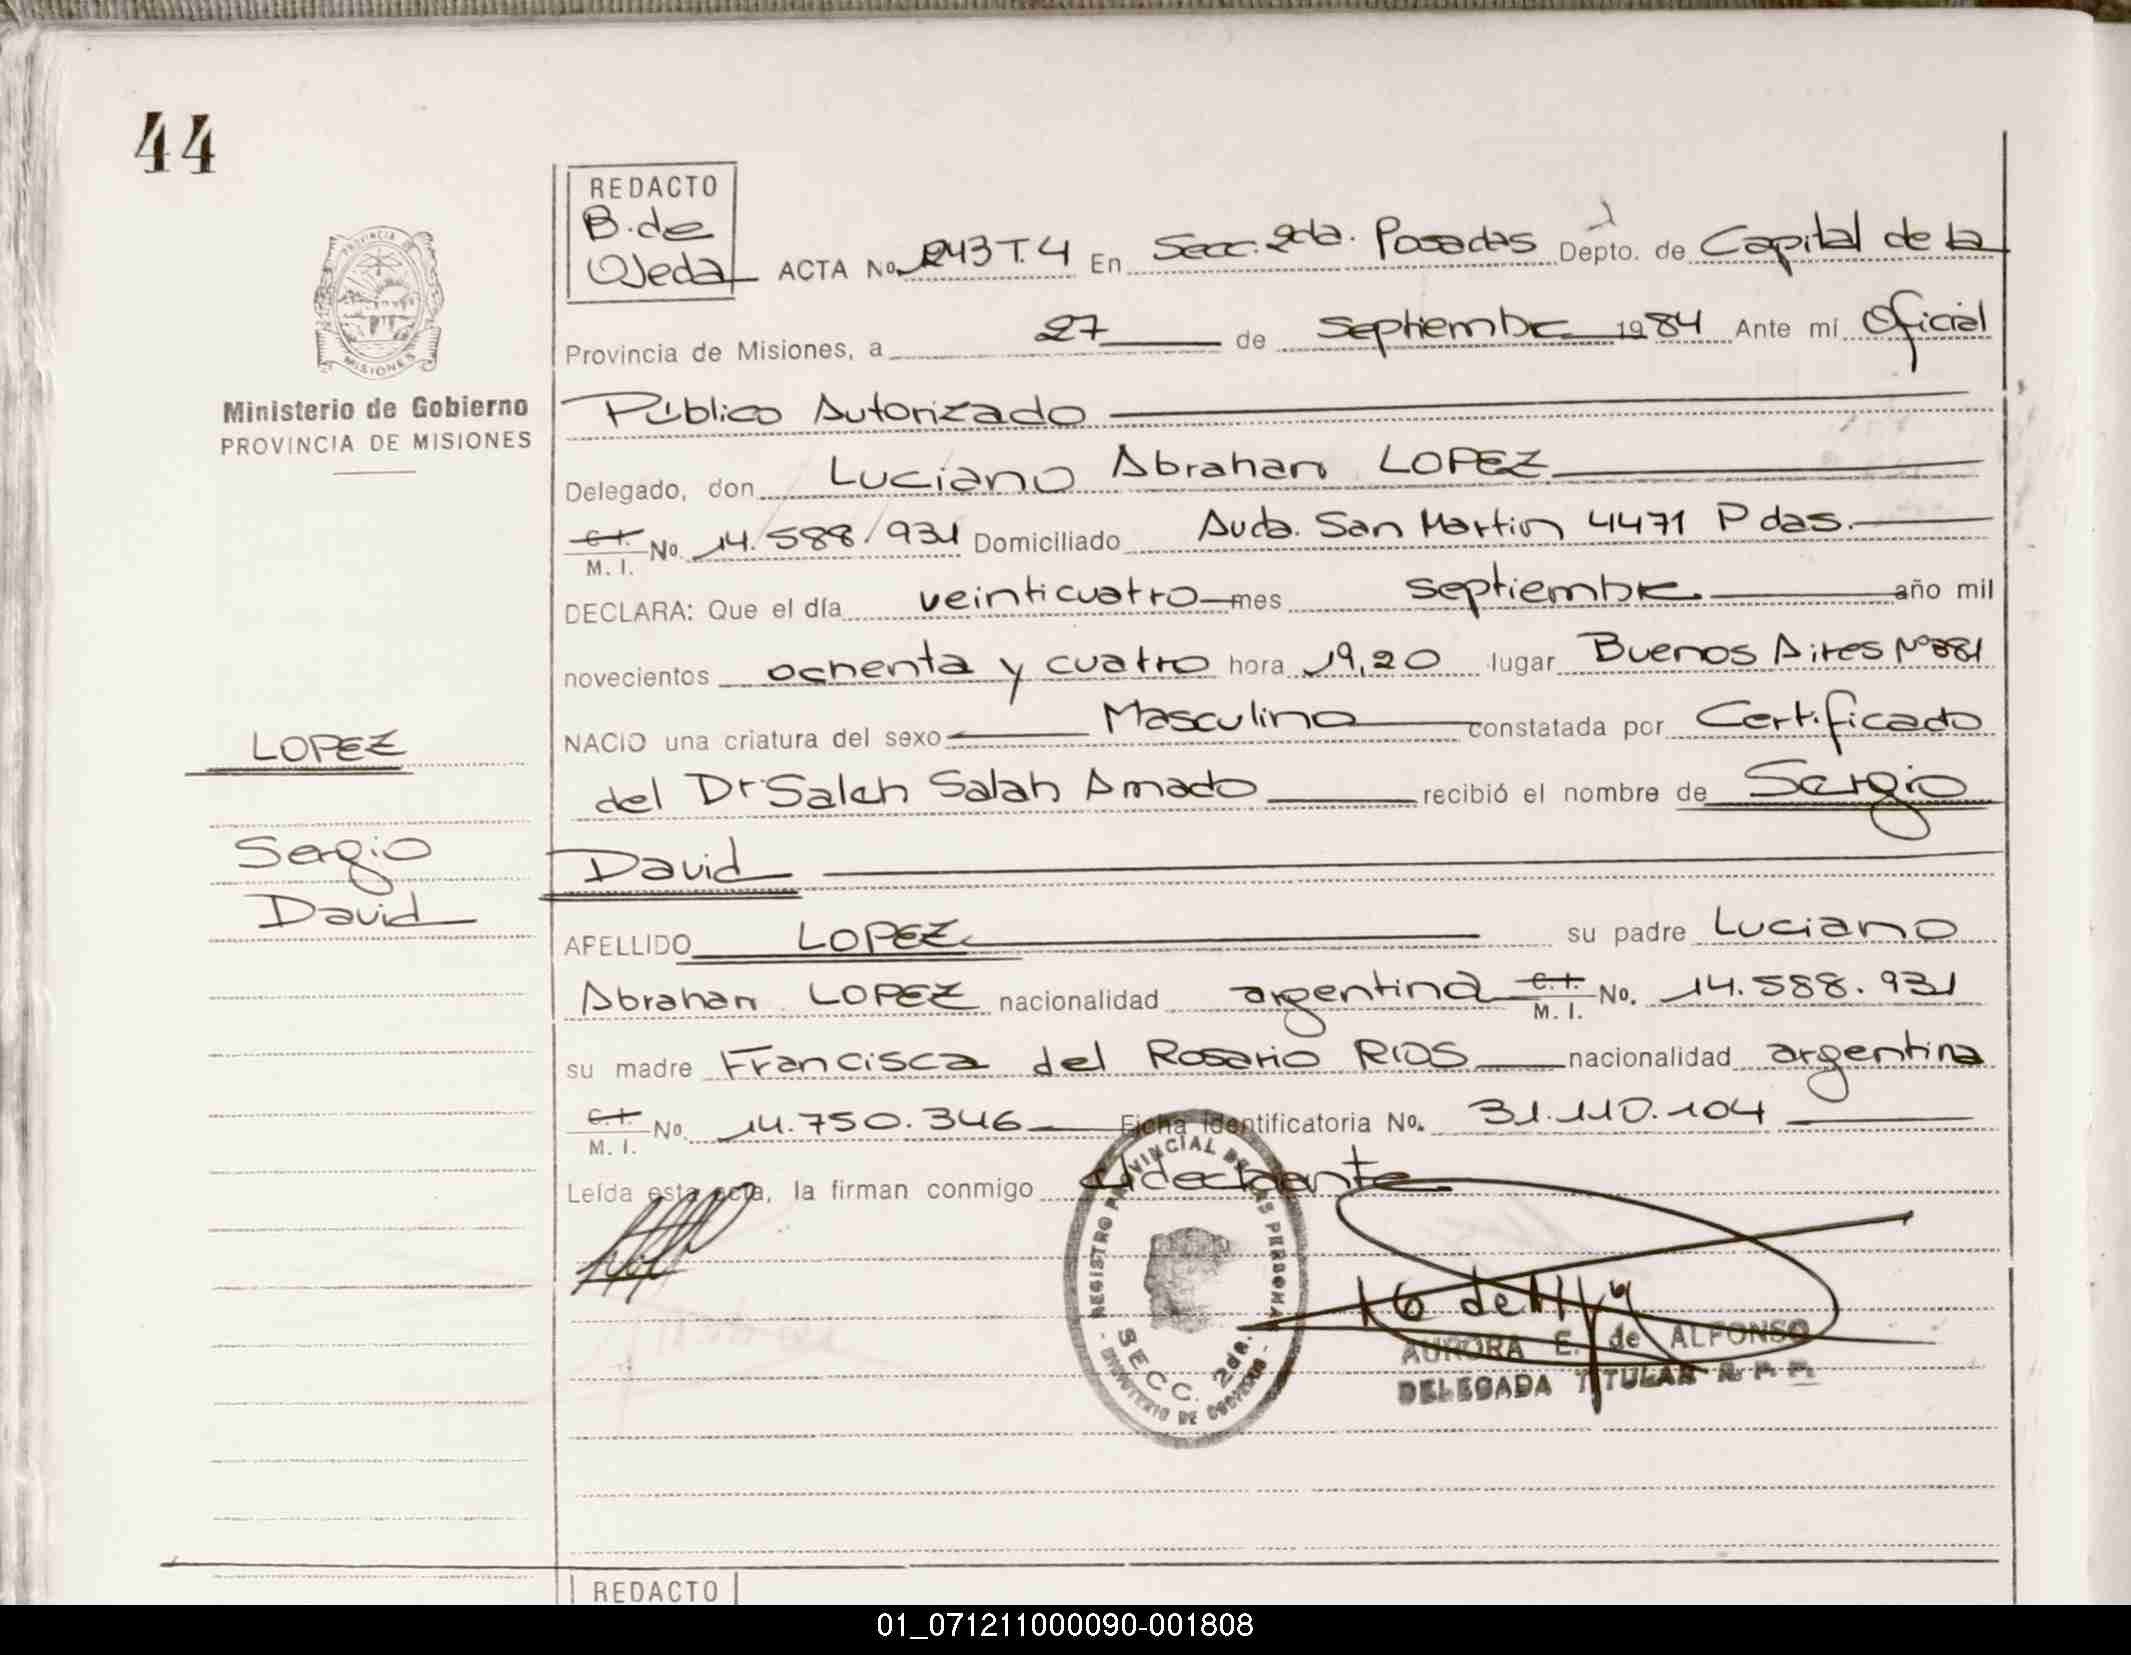 44
REDACTO
B. de
Ojeda
ACTA No. 243 T. 4 En Secc. 2da. Posadas Depto. de Capital de la
Provincia de Misiones, a 27 de septiembre 1984 Ante mí Oficial
Público Autorizado
Delegado, don Luciano Abrahan LOPEZ
C.I. M. I. No. 14.588/931 Domiciliado Avda. San Martin 4471 Pdas.
DECLARA: Que el día veinticuatro mes septiembre año mil
novecientos ochenta y cuatro hora 19,20 lugar Buenos Aires Nº 881
NACIO una criatura del sexo Masculino constatada por Certificado
del Dr Saleh Salah Amado recibió el nombre de Sergio
David
APELLIDO LOPEZ su padre Luciano
Abrahan LOPEZ nacionalidad argentina C.I. M. I. No. 14.588.931
su madre Francisca del Rosario RIOS nacionalidad argentina
C.I. M. I. No. 14.750.346 Ficha Identificatoria No. 31.110.104
Leída esta acta, la firman conmigo el declarante
PROVINCIA DE
MISIONES
Ministerio de Gobierno
PROVINCIA DE MISIONES
LOPEZ
Sergio
David
REGISTRO PROVINCIAL DE LAS PERSONAS
SECC. 2da.
MINISTERIO DE GOBIERNO
AURORA E. de ALFONSO
DELEGADA TITULAR R. P. P.
REDACTO
01_071211000090-001808